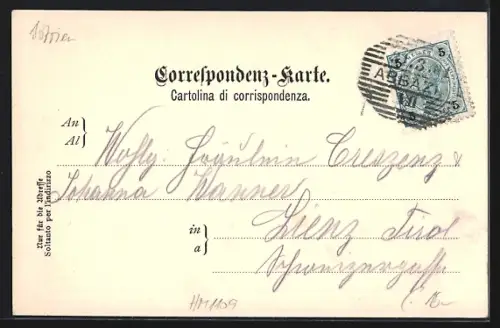 Correspondenz-Karte.
Cartolina di corrispondenza.
5
5
5
ABBAZI
An
Al
Wohlg. Fräulein Creszenz &
Johanna Wanner
in
a
Lienz Tirol
Schweizergasse
Nur für die Adresse
Soltanto per l'indirizzo